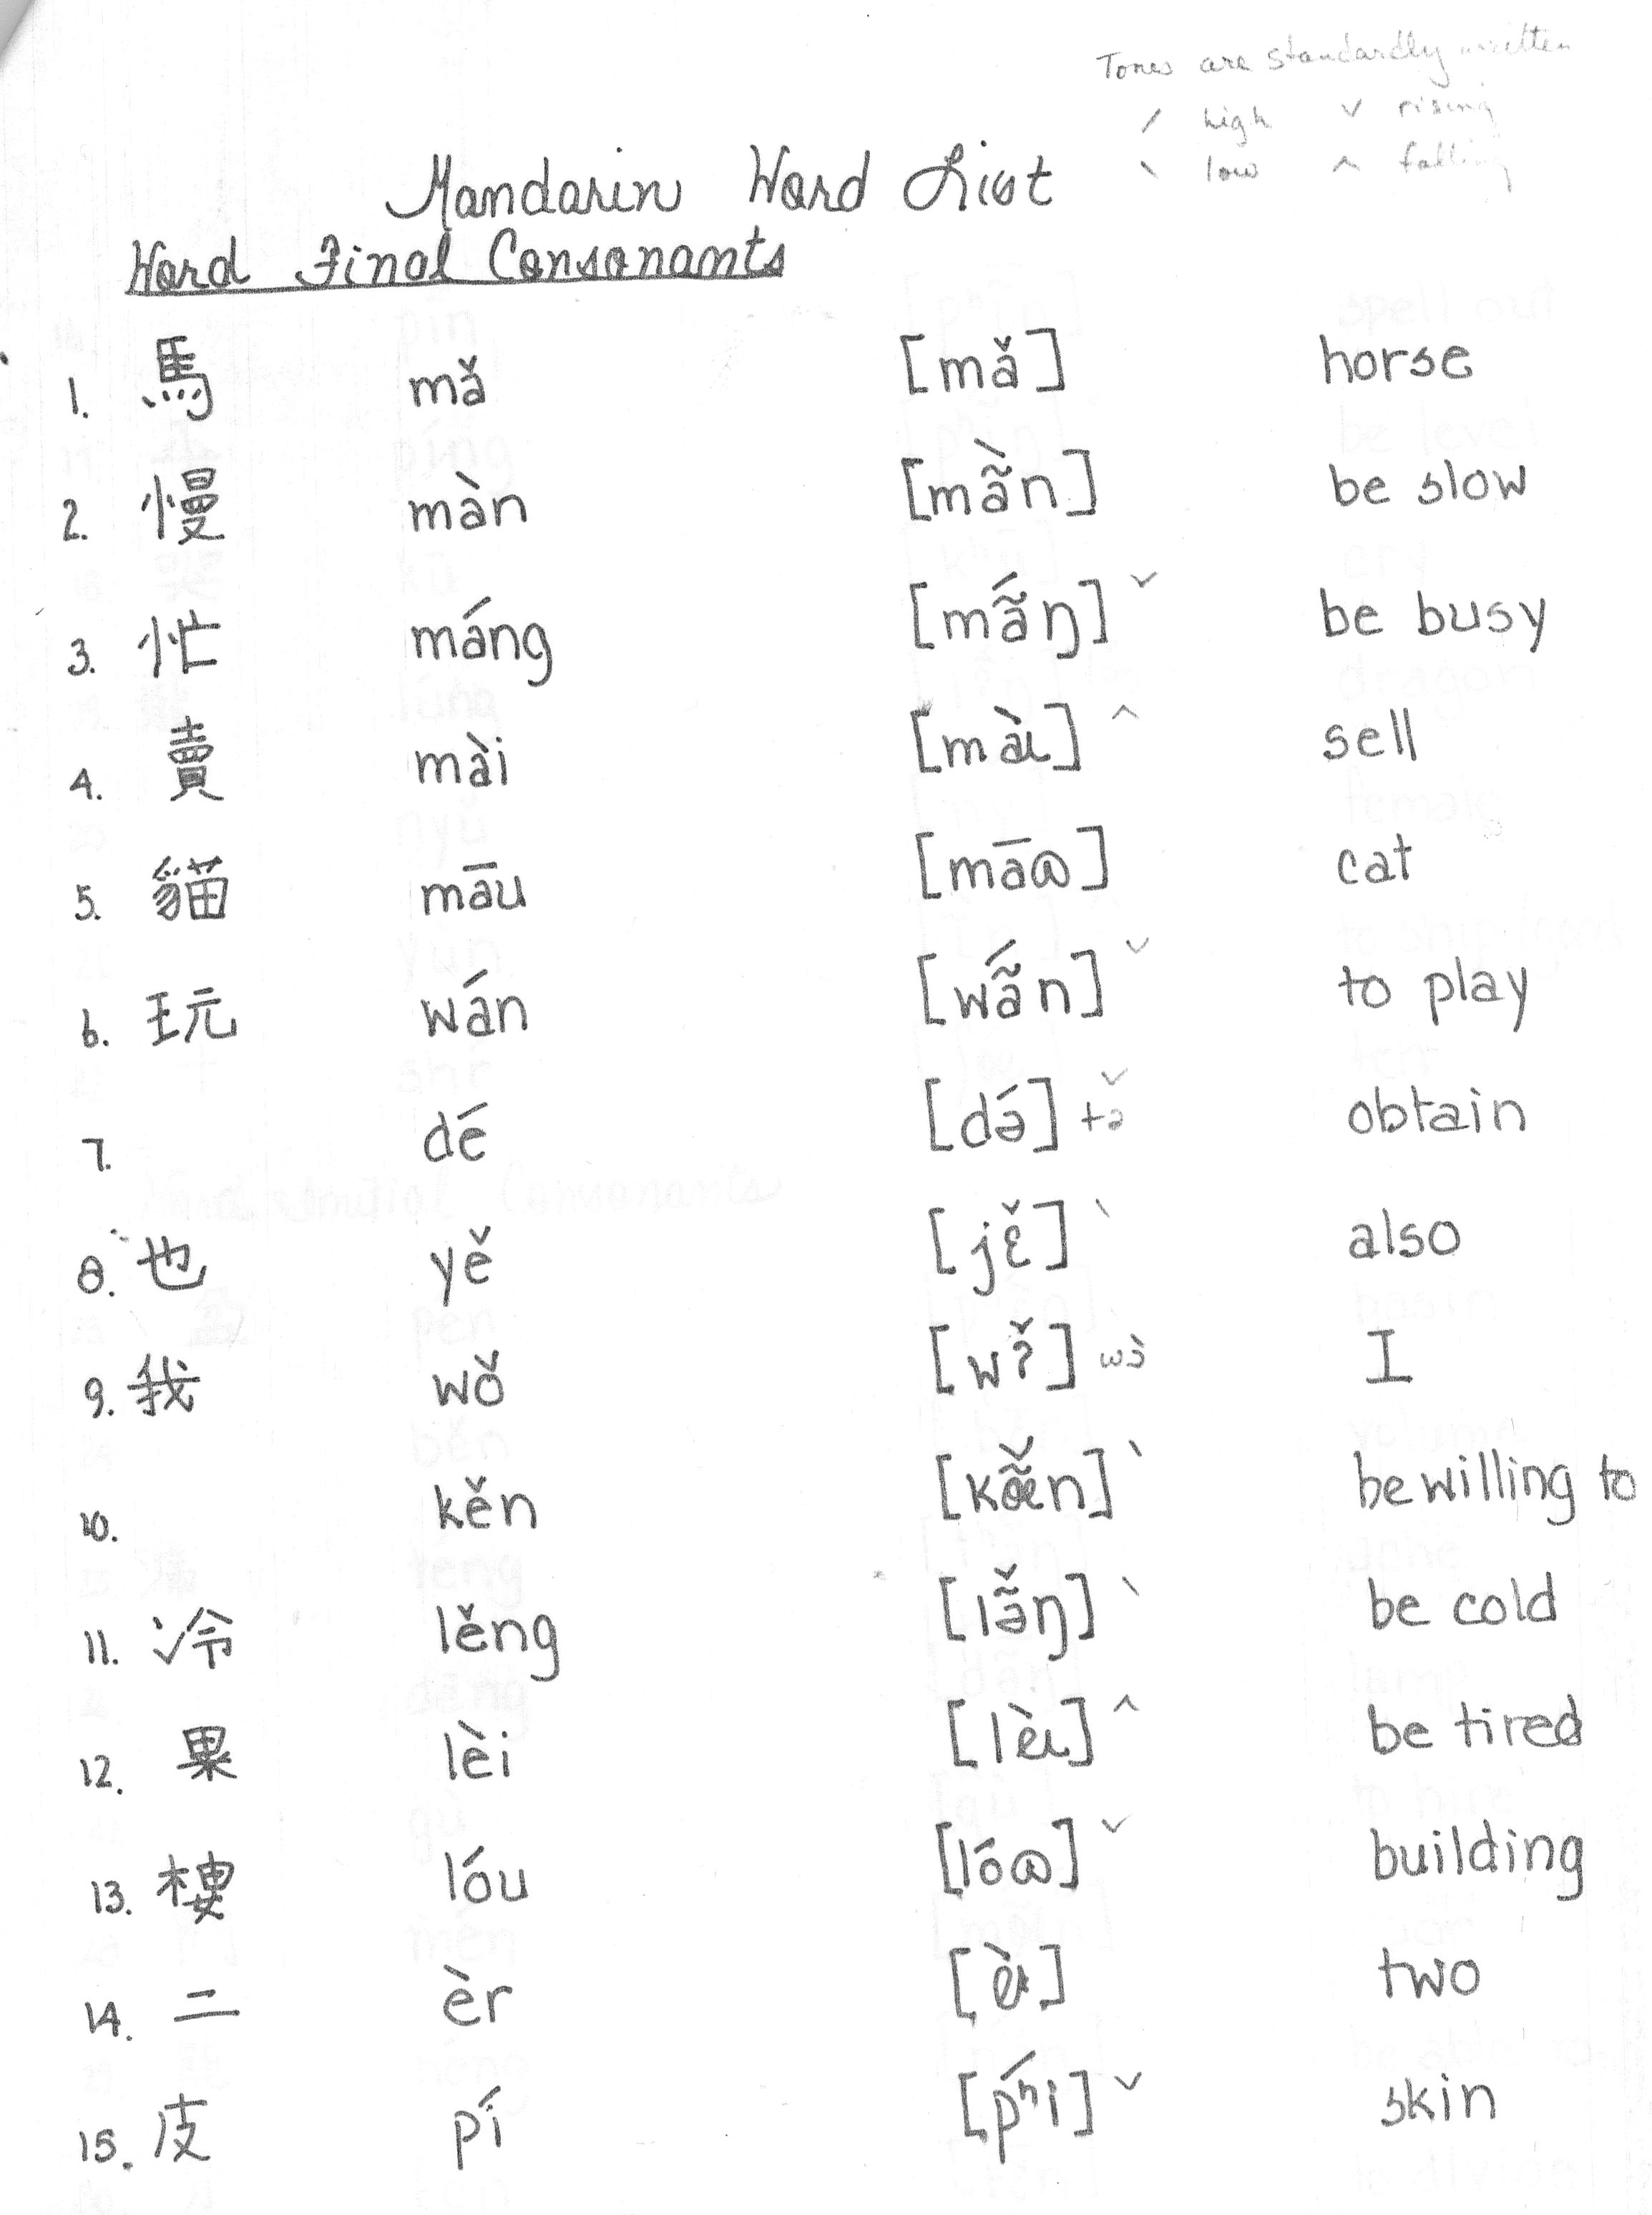 Tones are standardly written
ˊ high ˇ rising
ˋ low ˆ falling
Mandarin Word List
Word Final Consonants
1. 馬 mǎ [mǎ] horse
2. 慢 màn [mã̀n] be slow
3. 忙 máng [mã́ŋ] ˇ be busy
4. 賣 mài [màɩ] ˆ sell
5. 貓 māu [māɷ] cat
6. 玩 wán [wã́n] ˇ to play
7. dé [də́] tə̌ obtain
8. 也 yě [jɛ̌] ˋ also
9. 我 wǒ [wɔ̌] wɔ̀ I
10. kěn ˋ be willing to
11. 冷 lěng [lə̃̌ŋ] ˋ be cold
12. 累 lèi [lèɩ] ˆ be tired
13. 樓 lóu [lóɷ] ˇ building
14. 二 èr two
15. 皮 pí [pʰí] ˇ skin